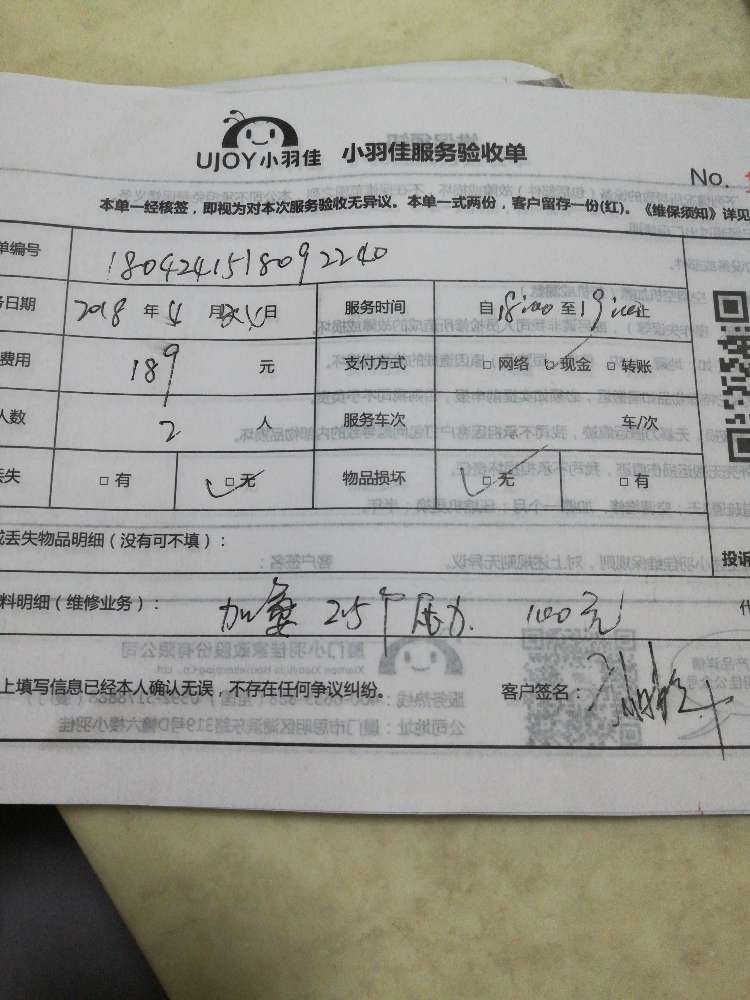 UJOY小羽佳 小羽佳服务验收单
No.
本单一经核签，即视为对本次服务验收无异议。本单一式两份，客户留存一份(红)。《维保须知》详见
单编号 1804241518092240
日期 2018 年 月 日 服务时间 自 18:00 至 19:00止
费用 189 元 支付方式 □ 网络 □ 现金 □ 转账
人数 2 人 服务车次 车/次
丢失 □ 有 □ 无 物品损坏 □ 无 □ 有
丢失物品明细（没有可不填）：
投诉
料明细（维修业务）： 25个压力 100元
上填写信息已经本人确认无误，不存在任何争议纠纷。 客户签名：